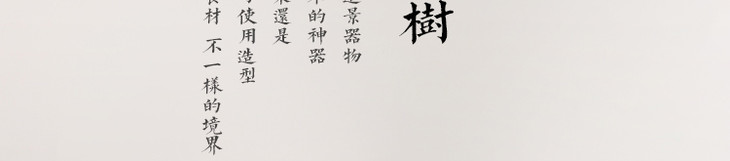 樹
景器物
的神器
還是
使用造型
材 不一樣的境界